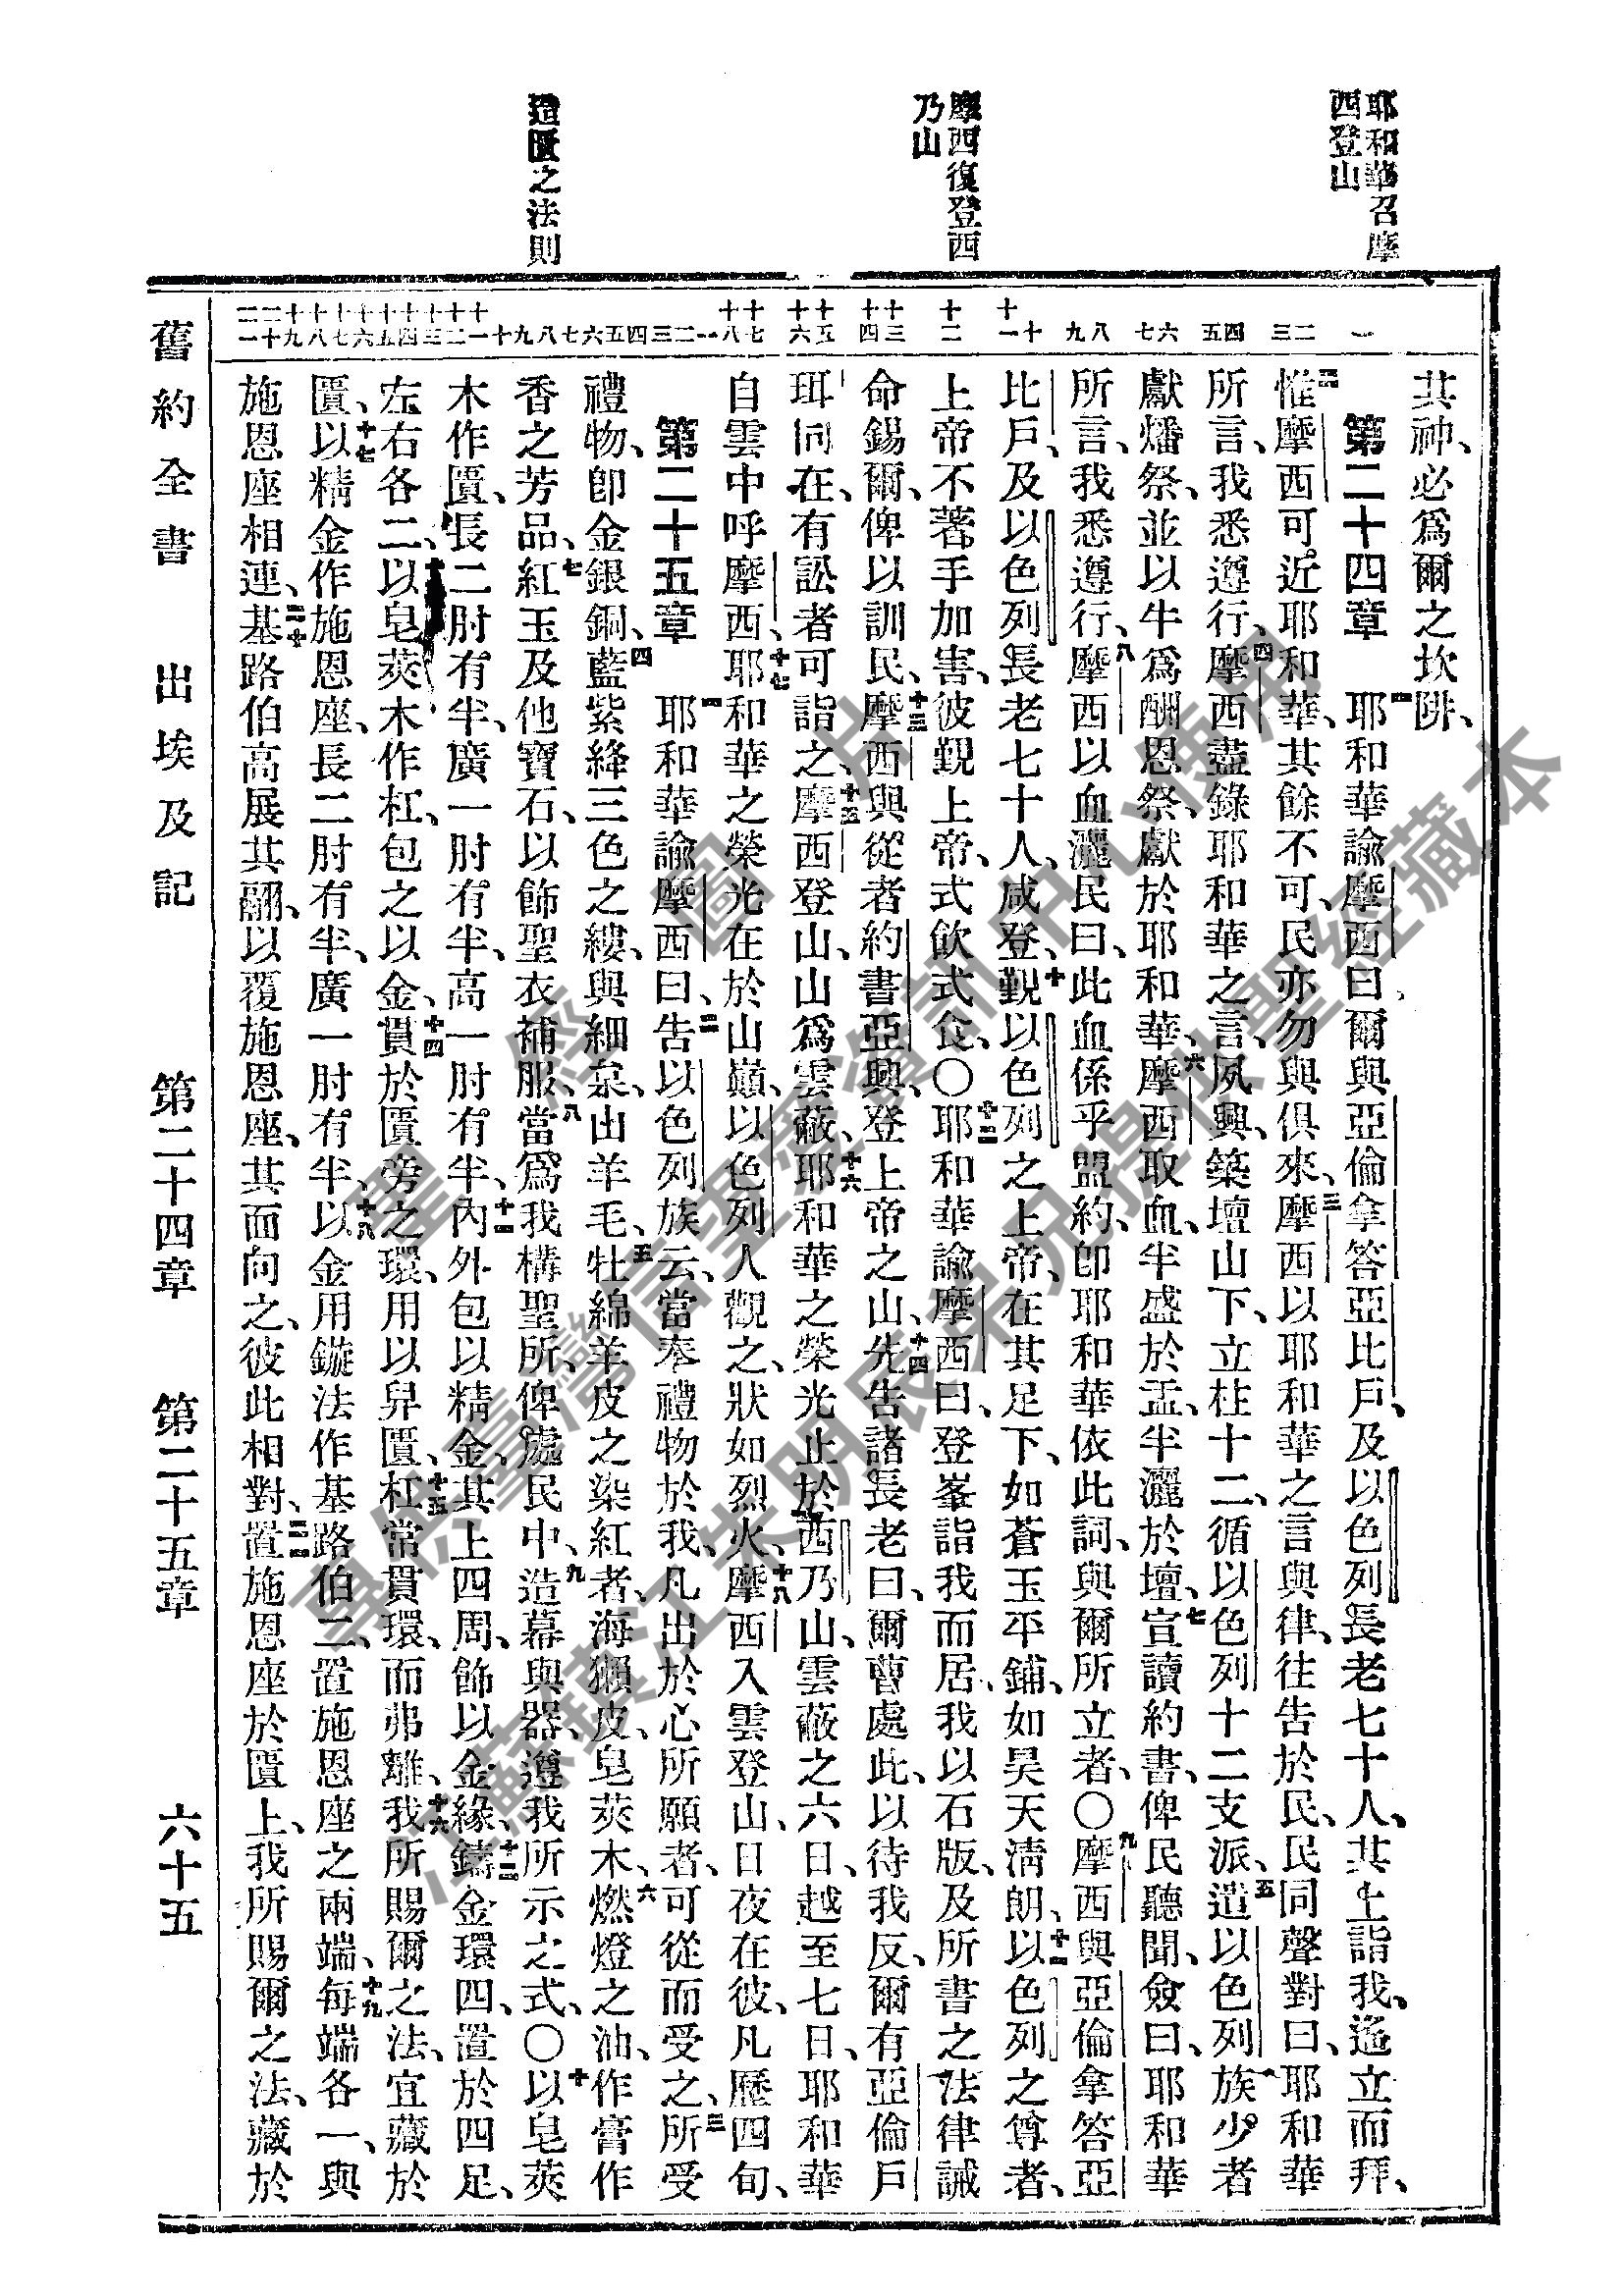 耶和華召摩
西登山
摩西復登西
乃山
造匱之法則
其神、必爲爾之坎阱、
第二十四章 一耶和華諭摩西曰爾與亞倫拿答亞比戶、及以色列長老七十人、其上詣我、遙立而拜、
二惟摩西可近耶和華、其餘不可、民亦勿與俱來、三摩西以耶和華之言與律、往告於民、民同聲對曰、耶和華
所言、我悉遵行、四摩西盡錄耶和華之言、夙興、築壇山下、立柱十二、循以色列十二支派、五遣以色列族少者
獻燔祭、並以牛爲酬恩祭、獻於耶和華、六摩西取血、半盛於盂、半灑於壇、七宣讀約書、俾民聽聞、僉曰、耶和華
所言、我悉遵行、八摩西以血灑民曰、此血係乎盟約、卽耶和華依此詞、與爾所立者、〇九摩西與亞倫拿答亞
比戶、及以色列長老七十人、咸登、十覲以色列之上帝、在其足下、如蒼玉平鋪、如昊天淸朗、十一以色列之尊者、
上帝不著手加害、彼覲上帝、式飮式食、〇十二耶和華諭摩西曰、登峯詣我而居、我以石版、及所書之法律誡
命錫爾、俾以訓民、十三摩西與從者約書亞興、登上帝之山、十四先告諸長老曰、爾曹處此、以待我反、爾有亞倫戶
珥同在、有訟者可詣之、十五摩西登山、山爲雲蔽、十六耶和華之榮光止於西乃山、雲蔽之六日、越至七日、耶和華
自雲中呼摩西、十七耶和華之榮光在於山巓、以色列人觀之、狀如烈火、十八摩西入雲登山、日夜在彼、凡歷四旬、
第二十五章 一耶和華諭摩西曰、二告以色列族云、當奉禮物於我、凡出於心所願者、可從而受之、三所受
禮物、卽金銀銅、四藍紫絳三色之縷、與細枲、山羊毛、五牡綿羊皮之染紅者、海獺皮、皂莢木、六燃燈之油、作膏作
香之芳品、七紅玉及他寶石、以飾聖衣補服、八當爲我構聖所、俾處民中、九造幕與器、遵我所示之式、〇十以皂莢
木作匱、長二肘有半、廣一肘有半、高一肘有半、十一內外包以精金、其上四周、飾以金緣、十二鑄金環四、置於四足、
左右各二、十三以皂莢木作杠、包之以金、十四貫於匱旁之環、用以舁匱、十五杠常貫環、而弗離、十六我所賜爾之法、宜藏於
匱、十七以精金作施恩座、長二肘有半、廣一肘有半、十八以金用鏇法作基路伯二、置施恩座之兩端、十九每端各一、與
施恩座相連、二十基路伯高展其翮、以覆施恩座、其面向之、彼此相對、二一置施恩座於匱上、我所賜爾之法、藏於
舊約全書 出埃及記 第二十四章 第二十五章 六十五
聖經圖片
專供臺灣信望愛資訊中心使用
江蘇鎮江朱明辰弟兄提供聖經藏本